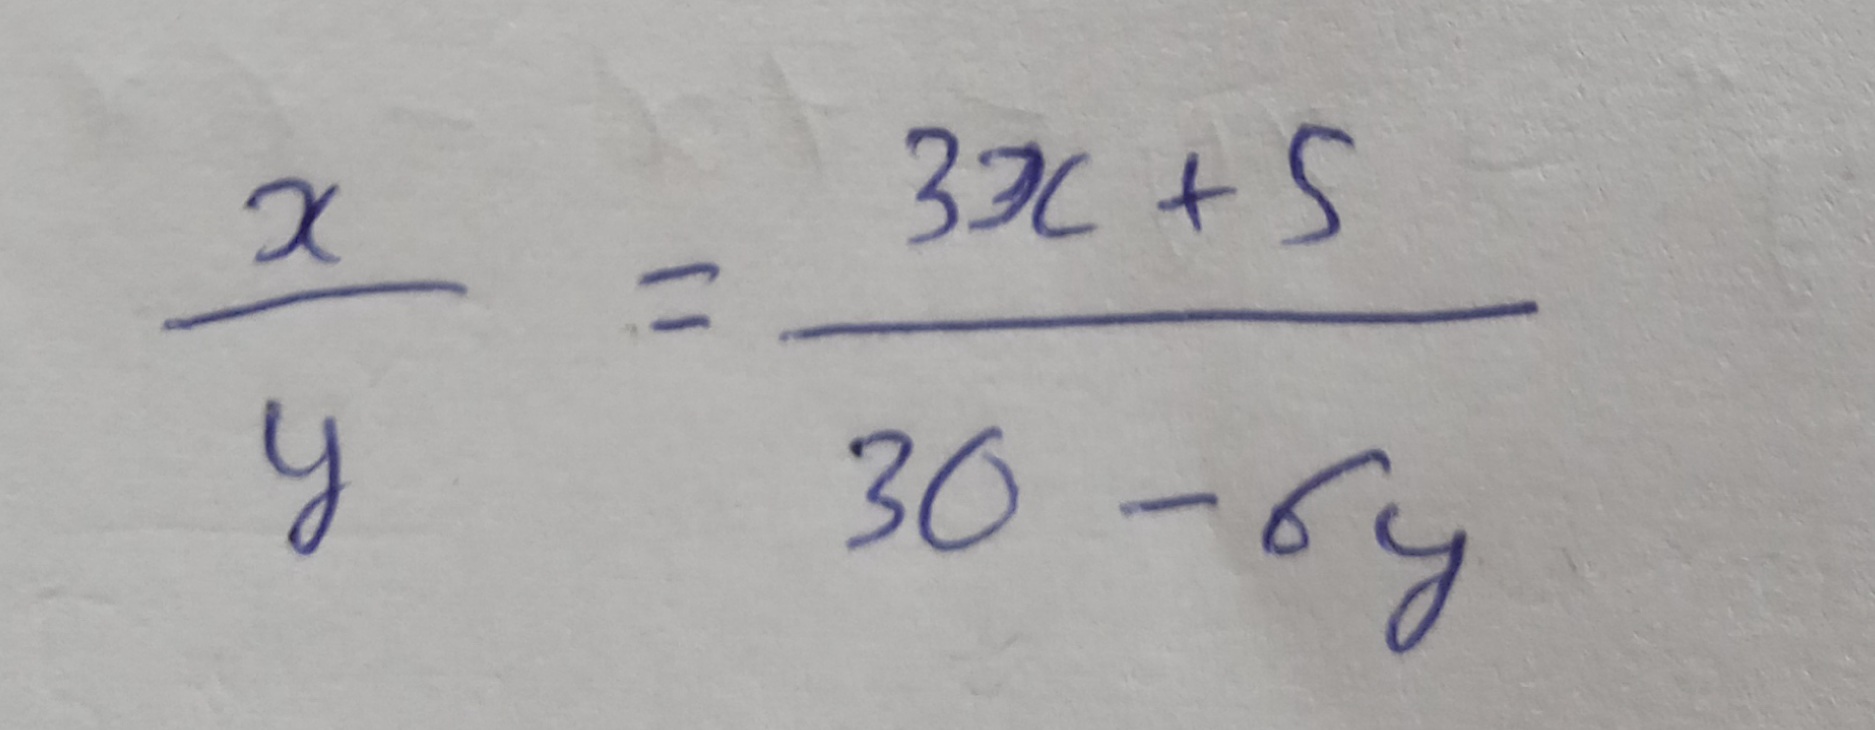 x/y = (3x + 5)/(30 - 6y)